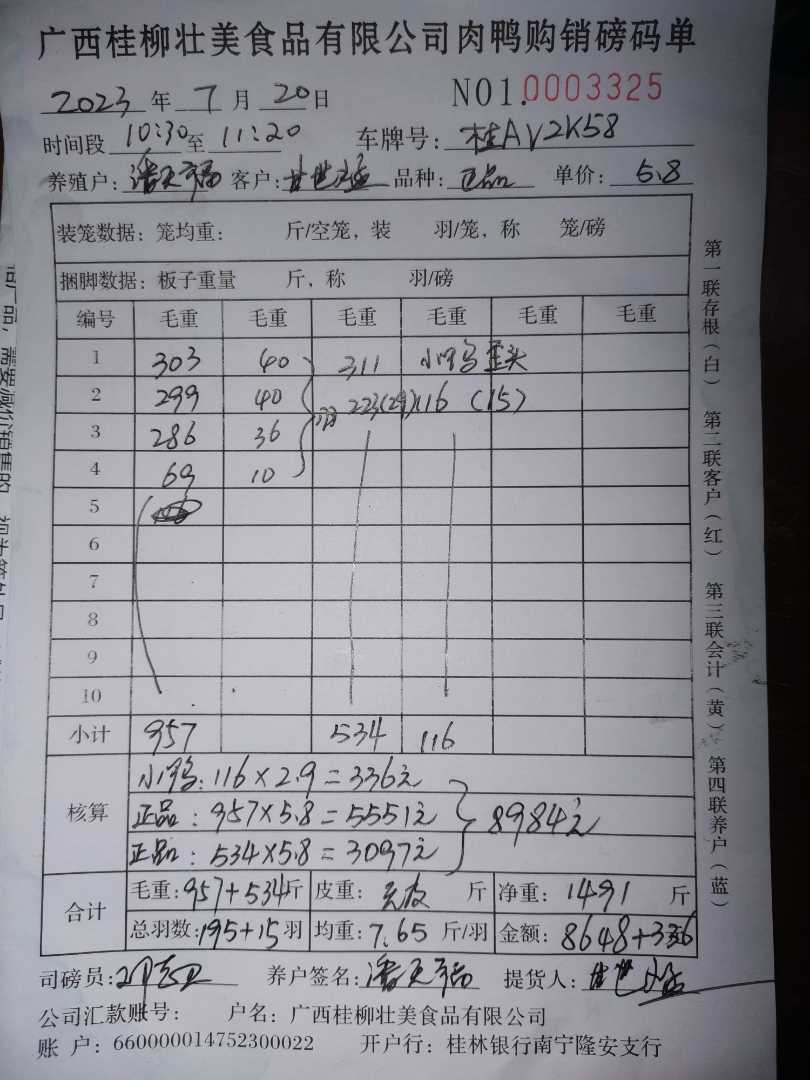 广西桂柳壮美食品有限公司肉鸭购销磅码单
2023 年 7 月 20 日 NO1.0003325
时间段 10:30 至 11:20 车牌号: 桂AV2K58
养殖户: 潘天福 客户: 甘世猛 品种: 正品 单价: 5.8
装笼数据: 笼均重: 斤/空笼, 装 羽/笼, 称 笼/磅
捆脚数据: 板子重量 斤, 称 羽/磅
编号 毛重 毛重 毛重 毛重 毛重 毛重
1 303 40 311 小鸭歪头
2 299 40 羽 223(29) 116 (15)
3 286 36
4 69 10
5
6
7
8
9
10
小计 957 534 116
核算 小鸭: 116×2.9=336元
正品: 957×5.8=5551元 8984元
正品: 534×5.8=3097元
合计 毛重: 957+534 斤 皮重: 去皮 斤 净重: 1491 斤
总羽数: 195+15 羽 均重: 7.65 斤/羽 金额: 8648+336
司磅员: 养户签名: 潘天福 提货人: 甘世猛
公司汇款账号: 户名: 广西桂柳壮美食品有限公司
账 户: 660000014752300022 开户行: 桂林银行南宁隆安支行
第一联存根(白) 第二联客户(红) 第三联会计(黄) 第四联养户(蓝)